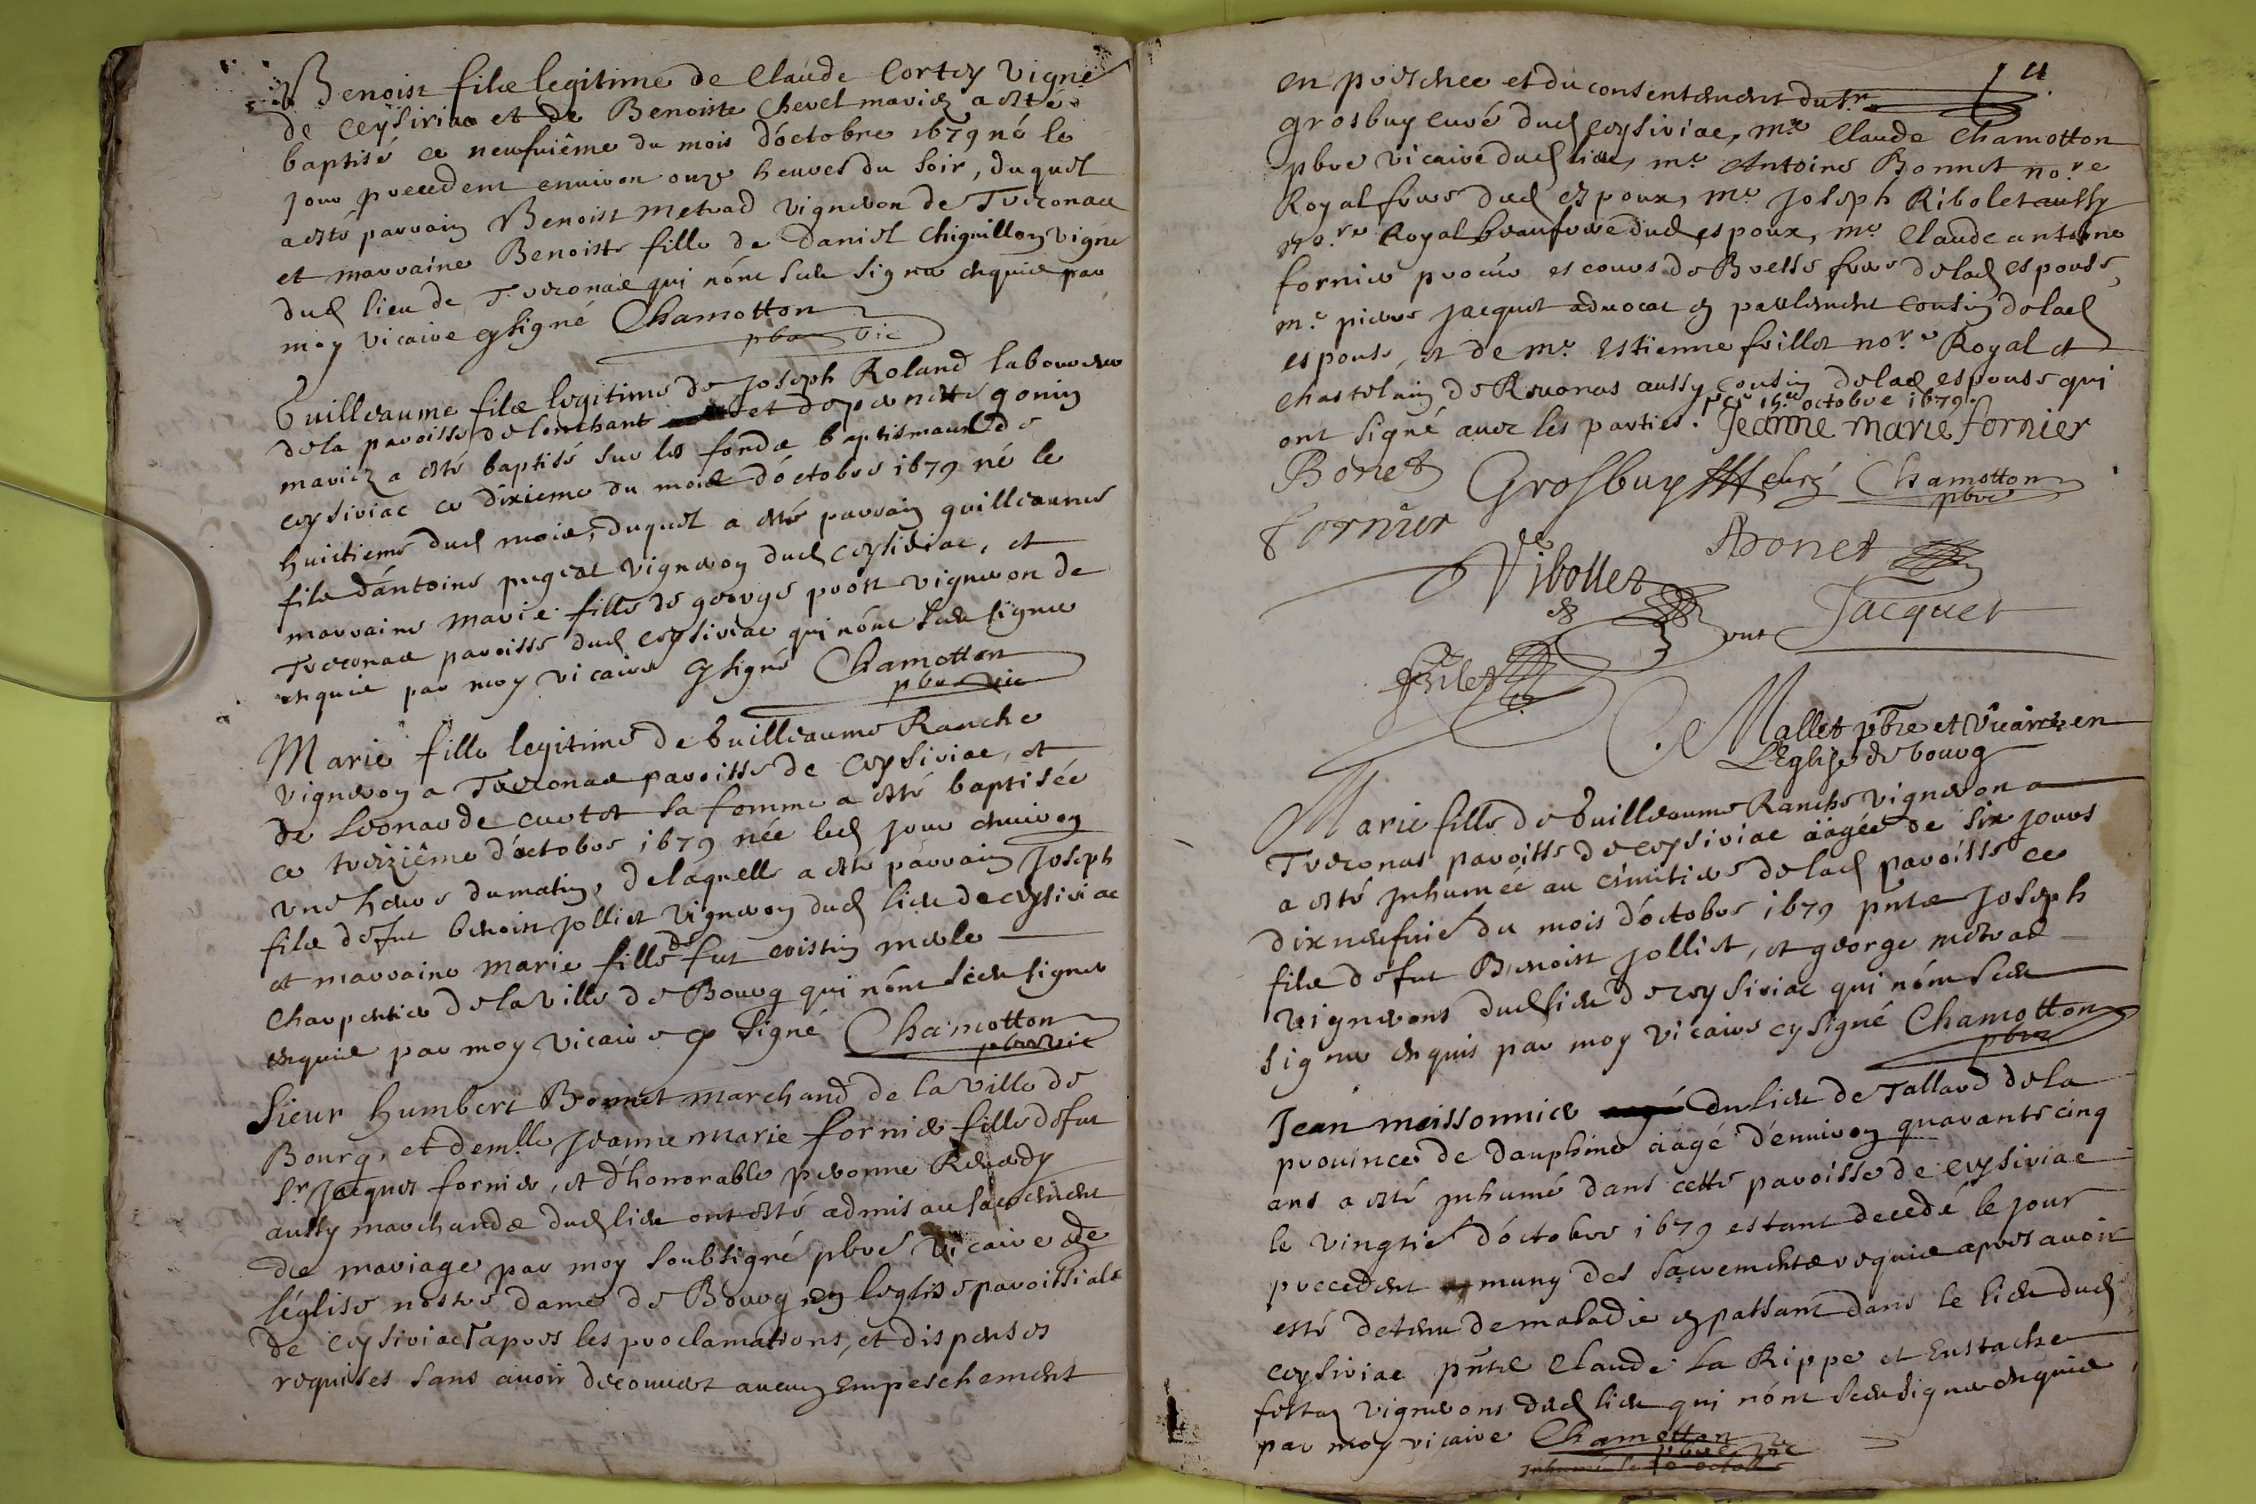 Benoist filz legitime de Claude Cortey vigne
de Ceysiriac et de Benoiste Chevel mariez a esté
baptisé ce neufuiême du mois d'octobre 1679 né le
jour precedent enuiron onze heures du soir, duquel
a esté parrain Benoist Metrad vigneron de Treconas
et marraine Benoiste fille de Daniel Chiguillon vigne
dud lieu de Treconas qui n'ont sceu signer enquis par
moy vicaire cy signé Chamotton
pbre vic
Guilleaume filz legitime de Joseph Roland laboureur
de la paroisse de et de pernette gonin
mariez a esté baptisé sur les fondz baptismaux de
ceysiriac ce dixieme du mois d'octobre 1679 né le
huictieme dud mois, duquel a esté parrain guilleaume
filz d'antoine pugeat vigneron dud ceysiriac, et
marraine marie fille de george prost vigneron de
Treconas paroisse dud ceysiriac qui n'ont sceu signer
enquis par moy vicaire cy signé Chamotton
pbre vic
Marie fille legitime de Guilleaume Ranche
vigneron a Treconas paroisse de Ceysiriac, et
de Leonarde curtet sa femme a esté baptisée
ce treiziême d'octobre 1679 née led jour enuiron
une heure du matin, de laquelle a esté parrain Joseph
filz de fut benoist jolliet vigneron dud lieu de ceysiriac
et marraine marie fille de fut cristin merle
charpentier de la ville de Bourg qui n'ont sceu signer
enquis par moy vicaire cy signé Chamotton
pbre vic
Sieur humbert Bonnet marchand de la ville de
Bourg, et dem.lle Jeanne marie fornier fille de fut
S.r Jacques fornier, et d'honorable peronne
aussy marchandz dud lieu ont esté admis au sacrement
de mariage par moy soubsigné pbre vicaire de
l'église nostre dame de Bourg en leglise paroissiale
de ceysiriac apres les proclamations, et dispenses
requises sans auoir decouuert aucun empeschement
14
en presence et du consentement du S.r
grosbuy curé dud ceysiriac, m.re Claude Chamotton
pbre vicaire dud lieu, m.e Antoine Bonnet no.re
Royal frere dud espoux, m.e Joseph Ribolet aussy
no.re Royal beaufrere dud espoux, m.e Claude antoine
fornier procur es cours de Bresse frere de lad espouse,
m.e pierre jacquet aduocat en parlement cousin de lad
espouse, et de m.e Estienne no.re Royal et
chastelain de Reuonas aussy cousin de lad espouse qui
ce 15.e octobre 1679
ont signé auec les parties. Jeanne marie fornier
Bonet Grosbuy curé Chamotton
pbre
Fornier
Ribollet Bonet
Jacquet
Mallet pbre et vicaire en
L'Eglise de bourg
Marie fille de Guilleaume Ranche vigneron a
Treconas paroisse de ceysiriac aagée de six jours
a esté inhumée au cimitiere de lad paroisse ce
dixneufuie du mois d'octobre 1679 pntz Joseph
filz de fut Benoist jolliet, et george metrad
vignerons dud lieu de ceysiriac qui n'ont sceu
signer enquis par moy vicaire cy signé Chamotton
pbre
Jean meissonnier du lieu de Tallard de la
prouince de dauphiné aagé d'enuiron quarante cinq
ans a esté inhumé dans cette paroisse de ceysiriac
le vingtie d'octobre 1679 estant decedé le jour
precedent muny des sacrementz requis apres auoir
esté detenu de maladie en passant dans le lieu dud
ceysiriac pntz Claude La Rippe et Eustache
vignerons dud lieu qui n'ont sceu signer enquis
par moy vicaire Chamotton
pbre vic